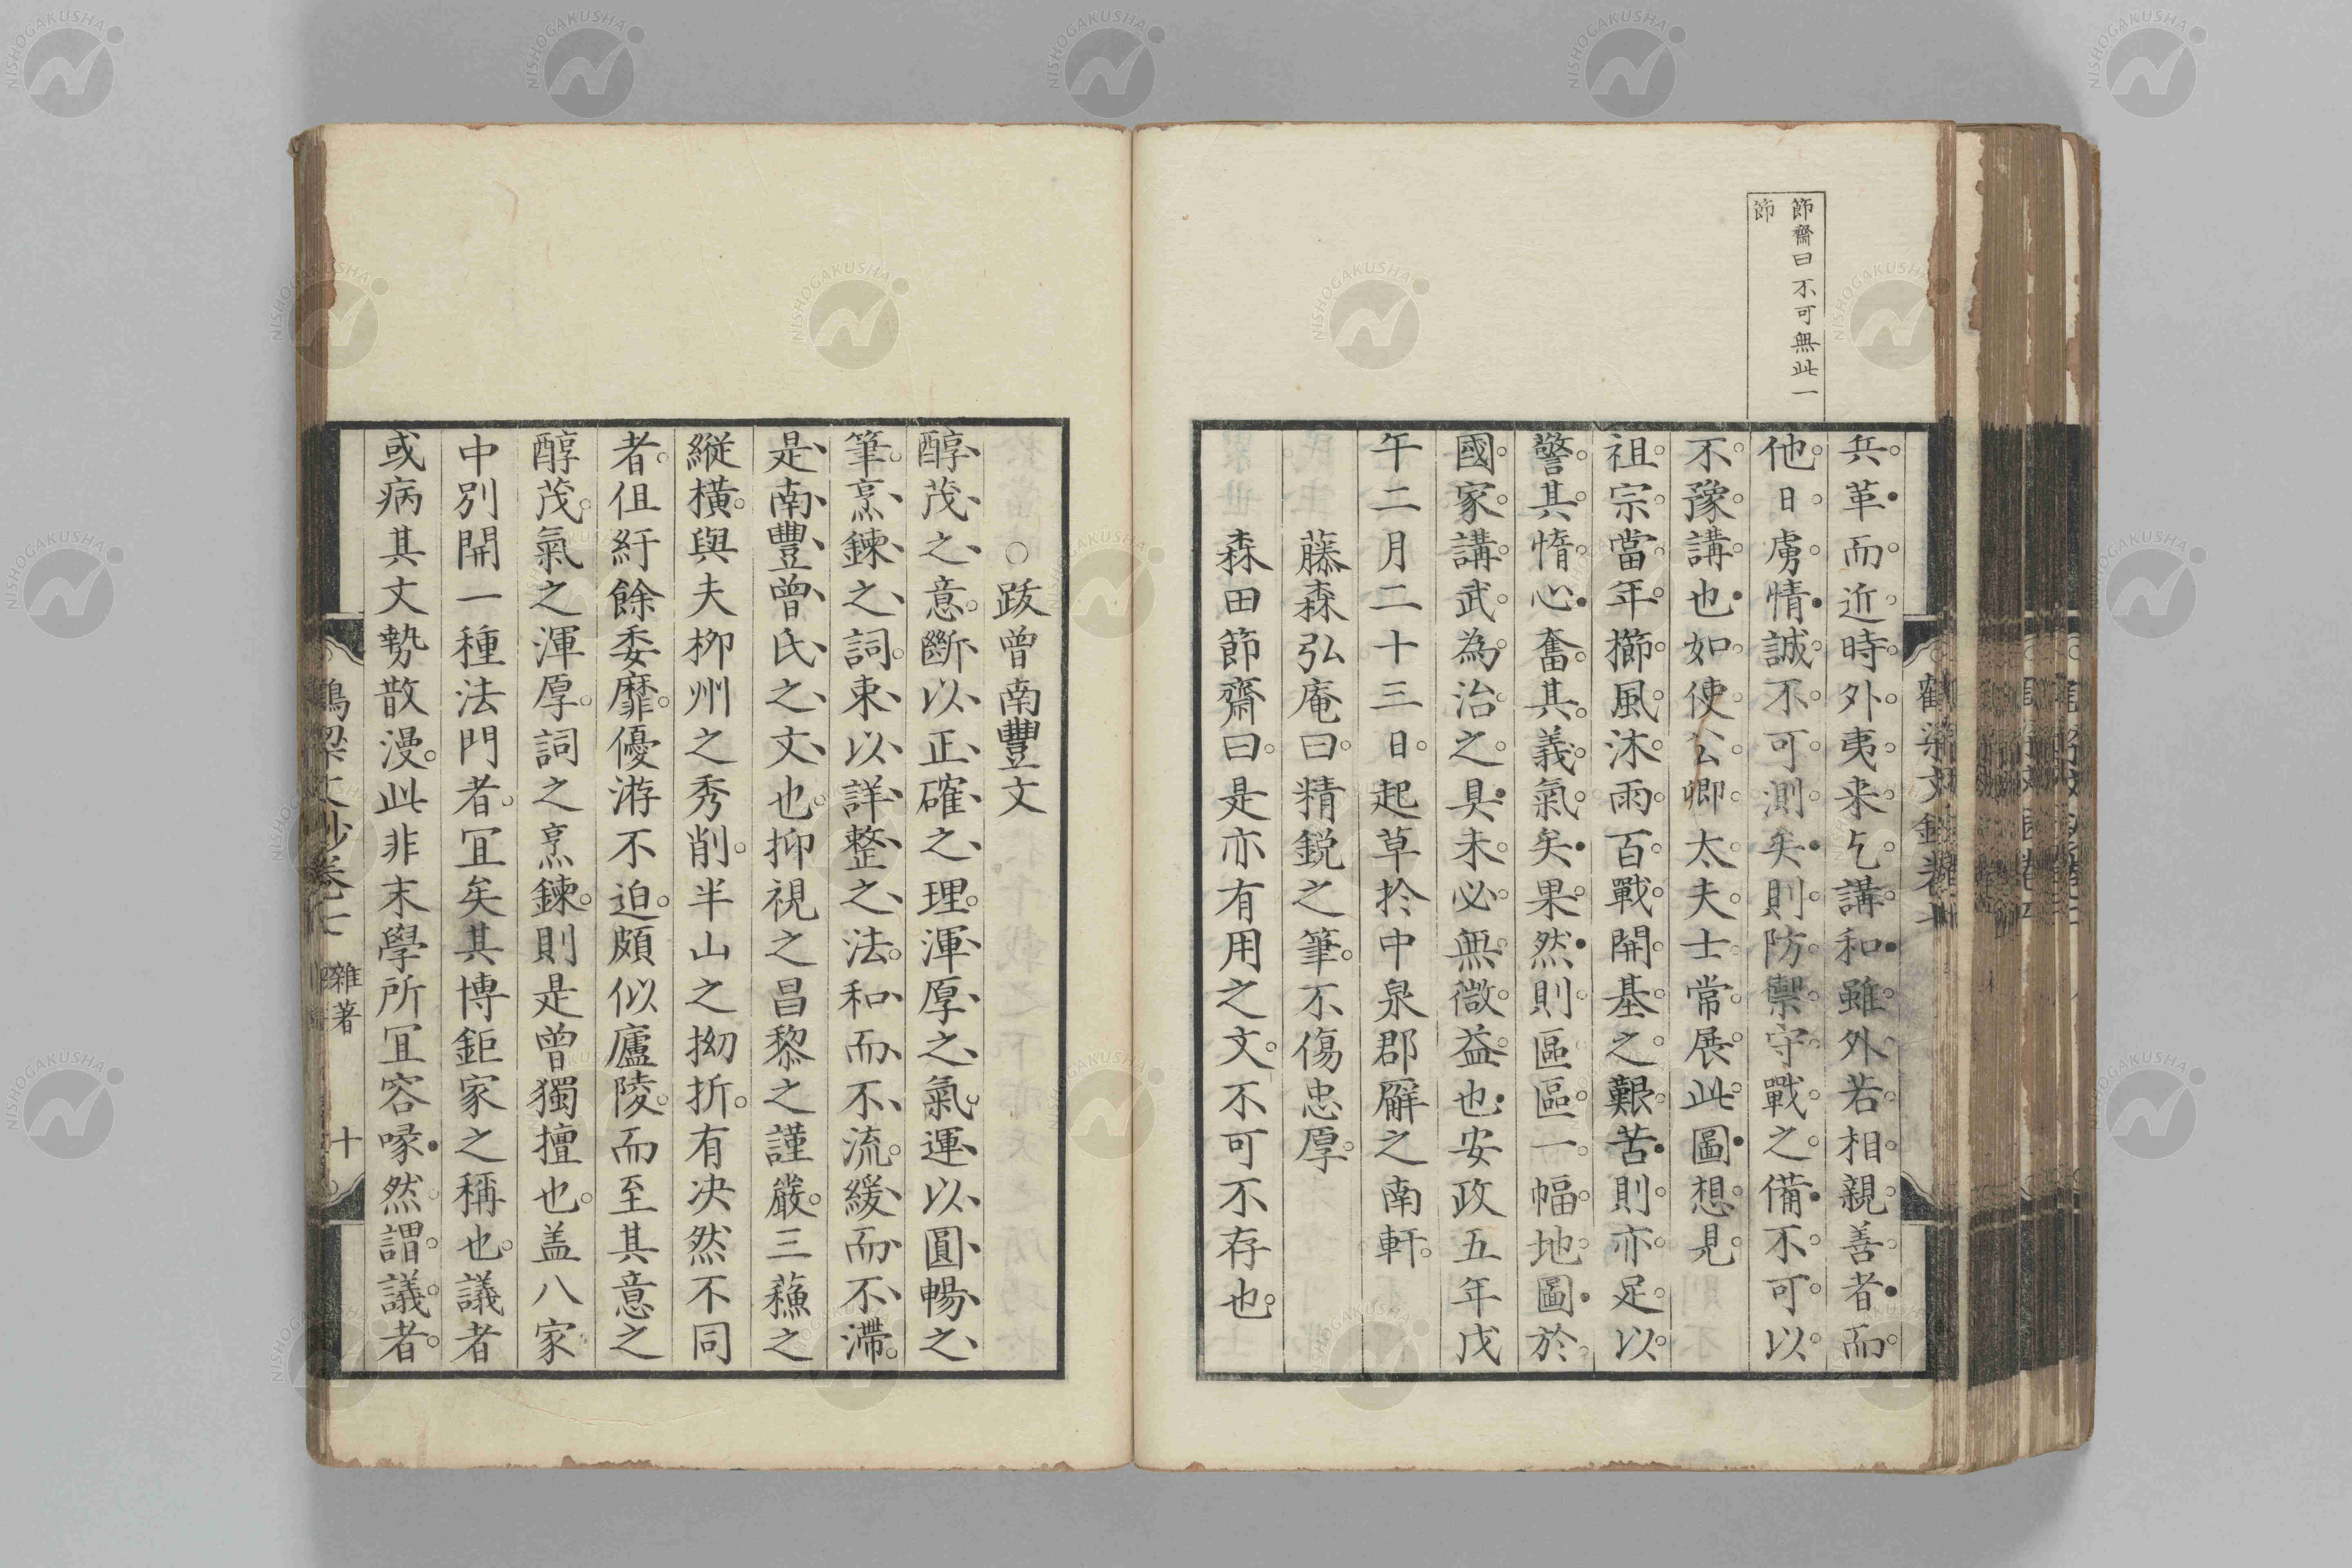 節齋曰不可無此一
節
兵革而近時外夷来乞講和雖外若相親善者而
他日虜情誠不可測矣則防禦守戰之備不可以
不豫講也如使公卿太夫士常展此圖想見
祖宗當年櫛風沐雨百戰開基之艱苦則亦足以
警其惰心奮其義氣矣果然則區區一幅地圖於
國家講武為治之具未必無微益也安政五年戊
午二月二十三日起草扵中泉郡廨之南軒
藤森弘庵曰精鋭之筆不傷忠厚
森田節齋曰是亦有用之文不可不存也
○跋曾南豐文
醇茂之意斷以正確之理渾厚之氣運以圓暢之
筆烹鍊之詞束以詳整之法和而不流緩而不滯
是南豐曾氏之文也抑視之昌黎之謹嚴三蘓之
縦橫與夫栁州之秀削半山之拗折有决然不同
者伹紆餘委靡優游不迫頗似廬陵而至其意之
醇茂氣之渾厚詞之烹鍊則是曾獨擅也盖八家
中別開一種法門者冝矣其博鉅家之稱也議者
或病其文勢散漫此非末學所冝容喙然謂議者
雜著
十
NISHOGAKUSHA